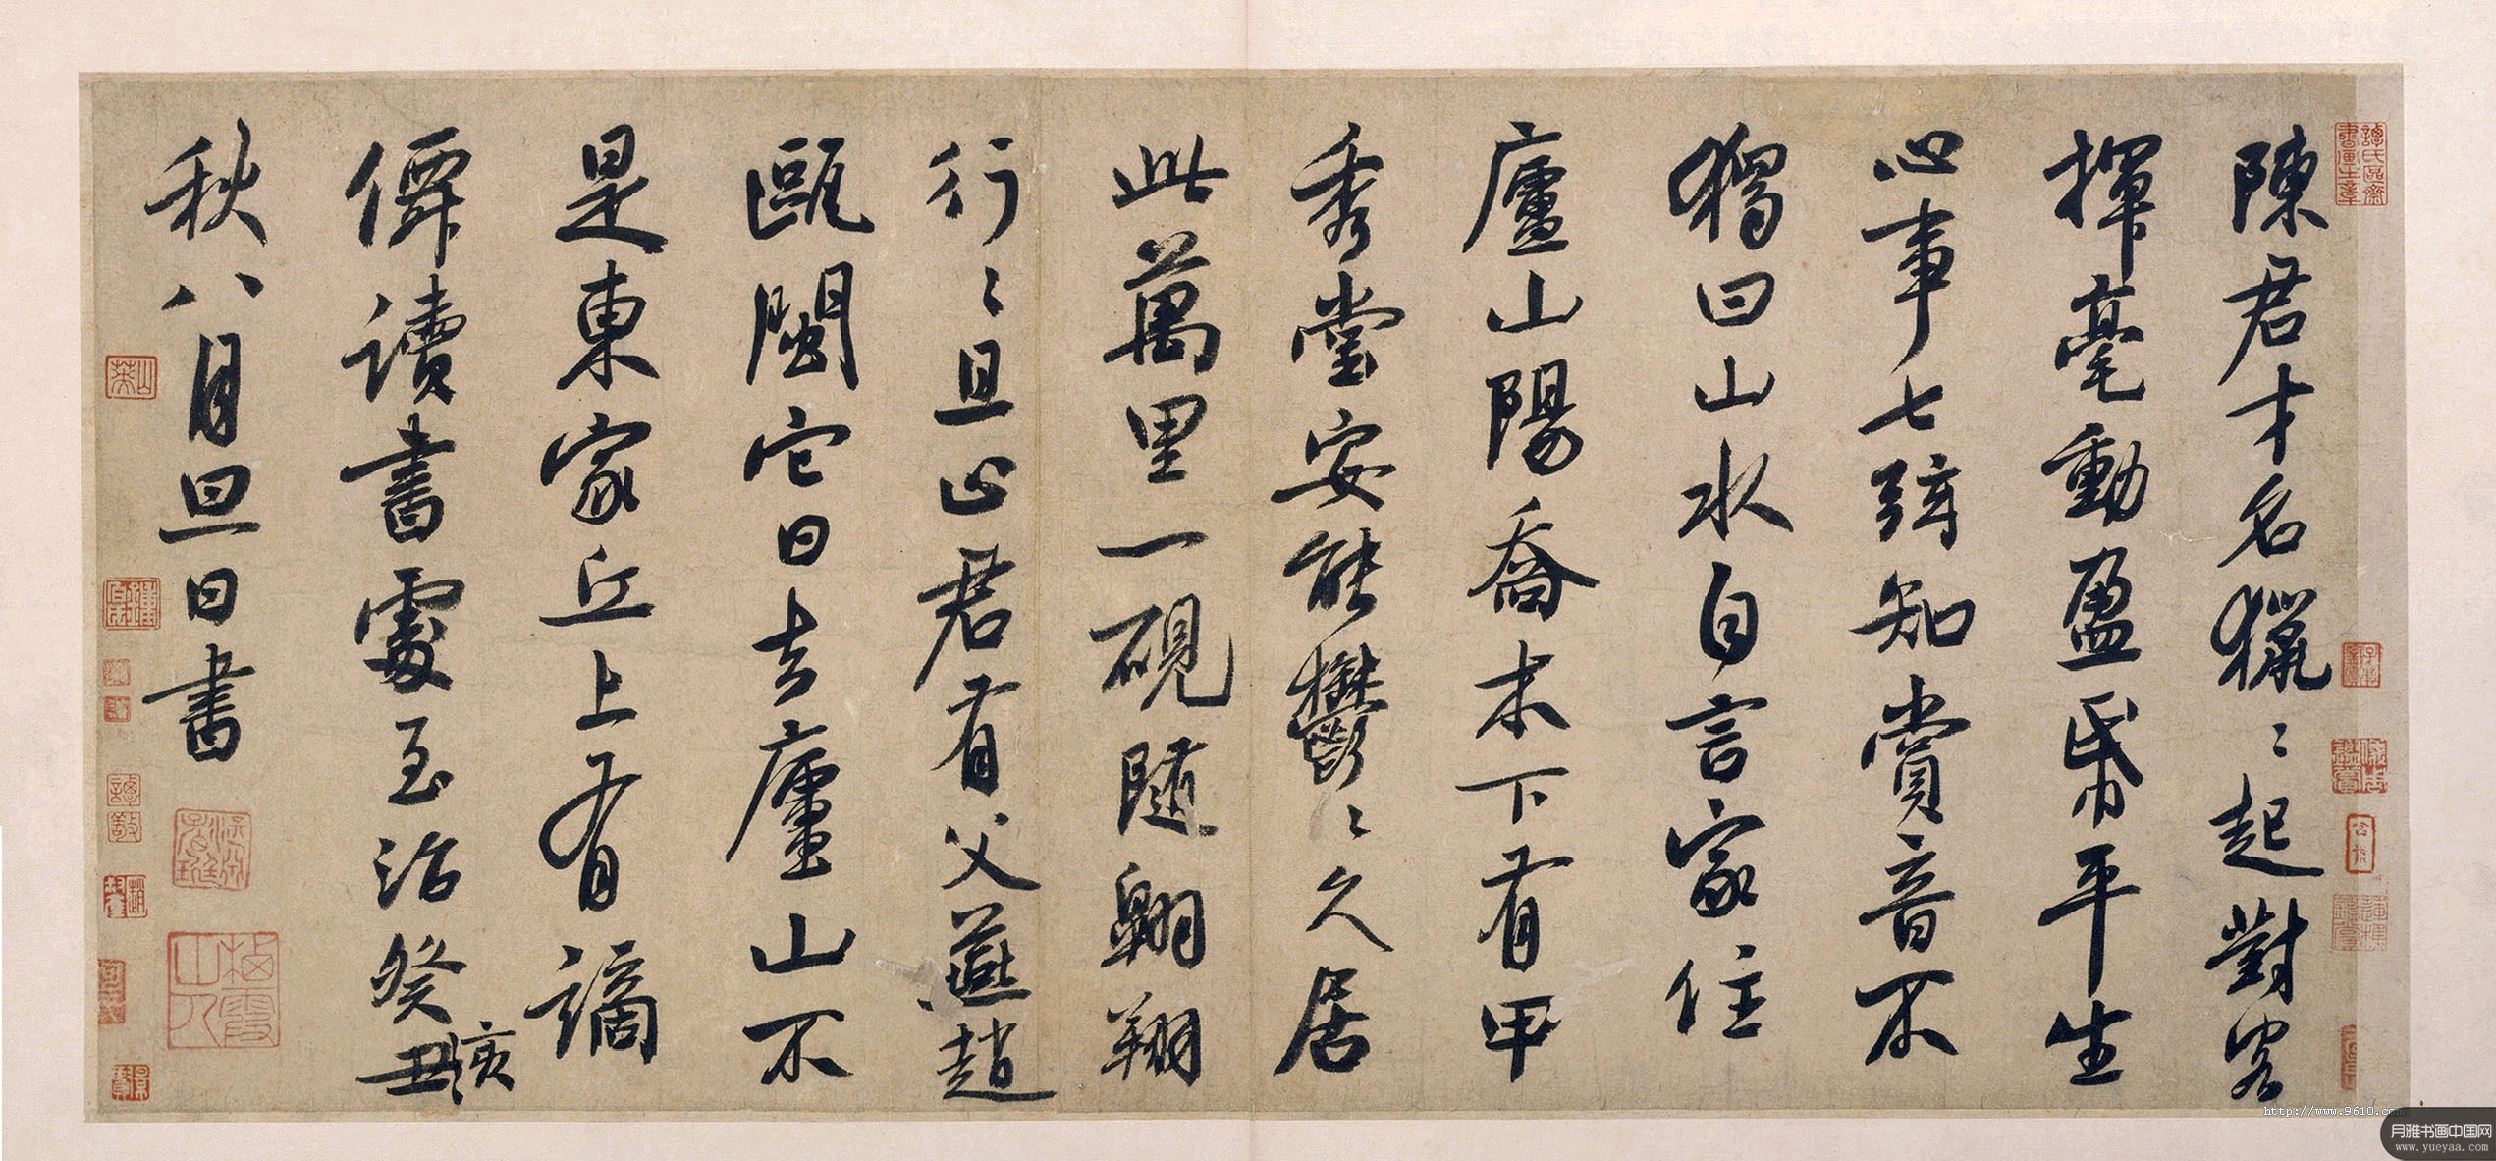 陳君才名獵〻起對客
揮毫動盈帋平生
心事七弦知賞音不
獨曰山水自言家住
廬山陽喬木下有甲
秀堂安能鬱〻久居
此萬里一硯隨翱翔
行〻且止君有父燕趙
甌閩它日去廬山不
是東家丘上有謫
僊讀書處至治癸
丑亥
秋八月旦日書
譚氏區齋
書画之章
http://www.9610.com
月雅书画中国网
www.yueyaa.com